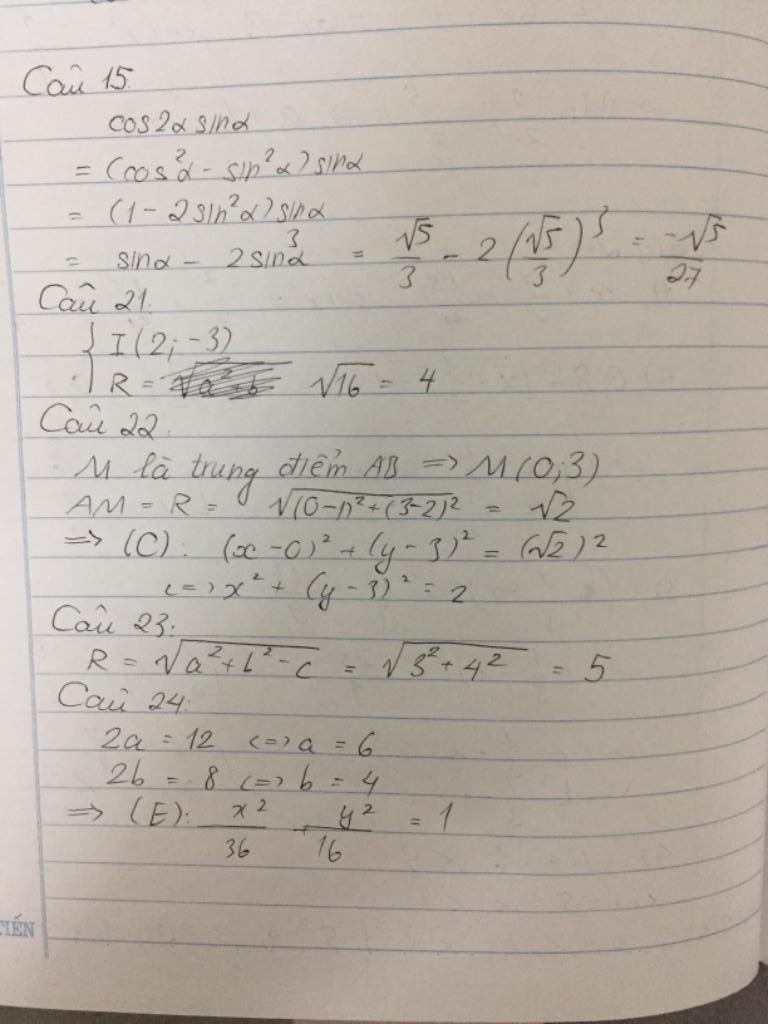 Câu 15.
cos2α sinα
= (cos²α - sin²α) sinα
= (1 - 2sin²α) sinα
= sinα - 2sin³α = √5/3 - 2(√5/3)³ = -√5/27
Câu 21.
{ I(2; -3)
R = √16 = 4
Câu 22.
M là trung điểm AB => M(0;3)
AM = R = √((0-1)²+(3-2)²) = √2
=> (C): (x-0)² + (y-3)² = (√2)²
<=> x² + (y-3)² = 2
Câu 23:
R = √(a²+b²-c) = √(3²+4²) = 5
Câu 24:
2a = 12 <=> a = 6
2b = 8 <=> b = 4
=> (E): x²/36 + y²/16 = 1
TIẾN